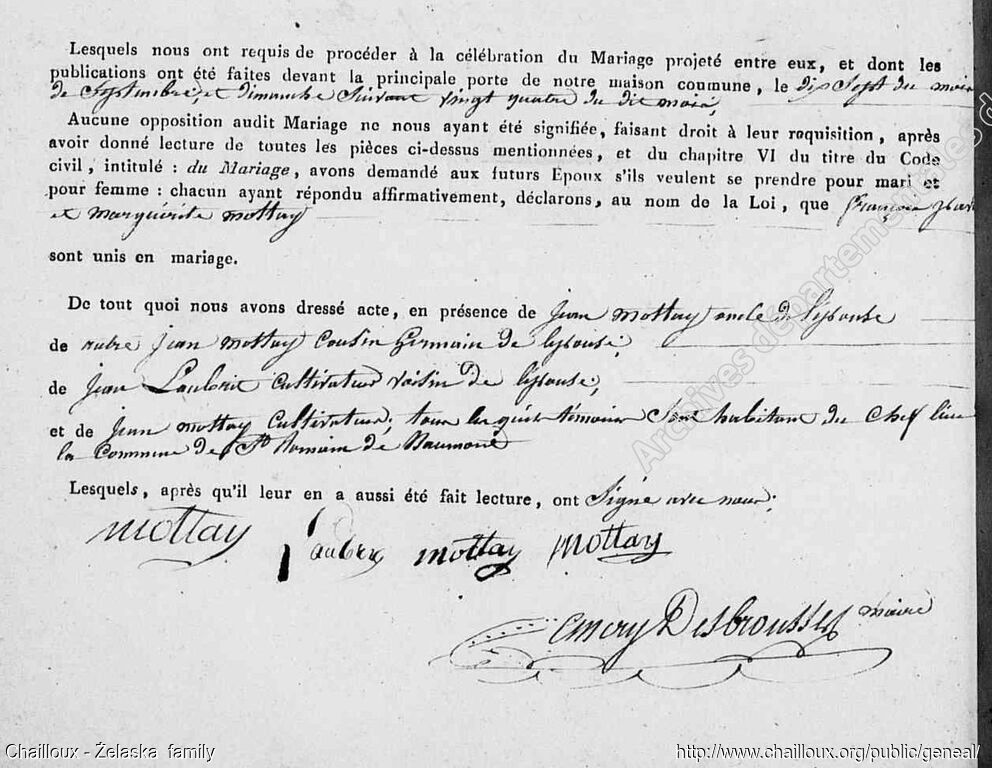 Lesquels nous ont requis de procéder à la célébration du Mariage projeté entre eux, et dont les
publications ont été faites devant la principale porte de notre maison comune, le dix Sept du mois
de Septembre, et dimanche Suivant vingt quatre du dit mois,
Aucune opposition audit Mariage ne nous ayant été signifiée, faisant droit à leur roquisition, après
avoir donné lecture de toutes les pièces ci-dessus mentionnées, et du chapitre VI du titre du Code
civil, intitulé : du Mariage, avons demandé aux futurs Époux s'ils veulent se prendre pour mari et
pour femme : chacun ayant répondu affirmativement, déclarons, au nom de la Loi, que françois
et marguerite mottay
sont unis en mariage.
De tout quoi nous avons dressé acte, en présence de Jean mottay oncle de l'épouse
de autre Jean mottay Cousin Germain de lepouse,
de Jean Laubrie cultivateur voisin de lépouse,
et de Jean mottay Cultivateur, tous les quatre témoins Sont habitans du Chef lieu
la Commune de St Romain de
Lesquels, après qu'il leur en a aussi été fait lecture, ont Signé avec nous.
mottay mottay mottay
Emery Desbrousses maire
Archives départementales d
Chailloux - Želaska family
http://www.chailloux.org/public/geneal/